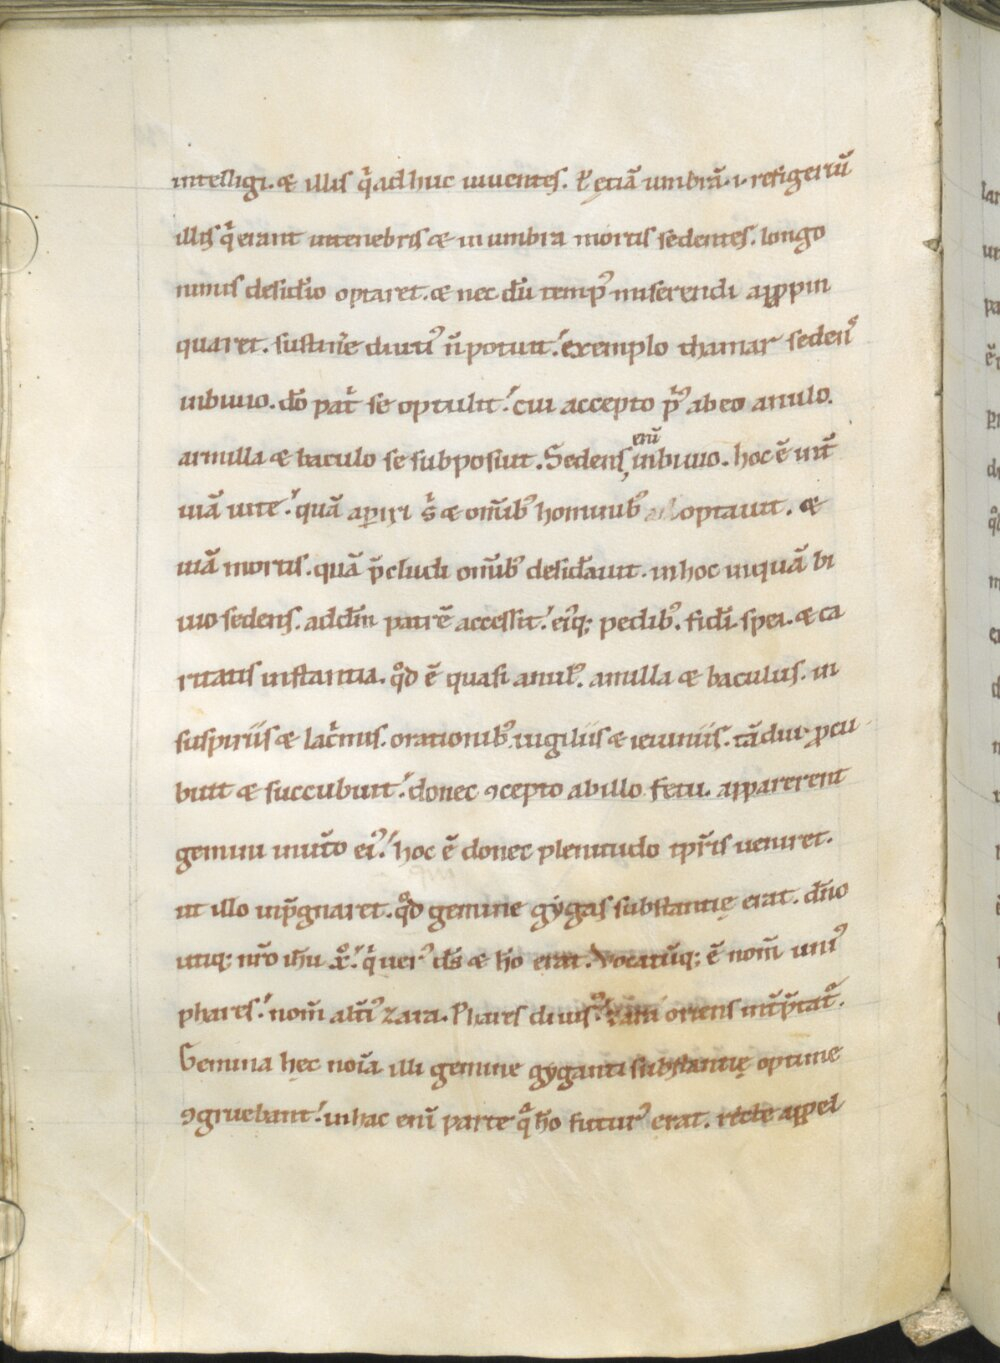 intelligi. & illis q̓ adhuc uiuentes. Ꝑ etiã umbrã .i. refigeriũ
illis q̓ erant in tenebris & in umbra mortis sedentes. longo
nimis desid̓io optaret. & nec dũ tempꝰ miserendi aꝓpin
quaret. sustin̓e diutiꝰ ñ potuit. exemplo thamar sedenꝰ
in biuio. dõ pat̓ se optulit. cui accepto p̓ꝰ ab eo anulo.
armilla & baculo se subposuit. Sedens enĩ in biuio. hoc ẽ int̃
uiã uite. quã aꝑiri s̓ & om̃ibꝰ hominibꝰ optauit. &
uiã mortis. quã p̃cludi om̃ibꝰ desid̓auit. in hoc inquã bi
uio sedens. ad dm̃ patrẽ accessit. eiꝰq; pedibꝰ. fidei. spei. & ca
ritatis instantia. qd̊ ẽ quasi anulꝰ. armilla & baculus. in
suspiriis & lac̓mis. orationibꝰ. uigiliis & ieiuniis. tãdiu ꝓcu
buit & succubuit. donec ꝯcepto ab illo fetu. apparerent
gemini in ut̓o eiꝰ. hoc ẽ donec plenitudo tp̃ris ueniret.
in illo inp̃gnaret. qd̊ gemine gygas substantię erat. dño
utiq; nr̃o ih̃u xp̊. q̓ uerꝰ ds̃ & hõ erat. Vocatũq; ẽ nom̃ uniꝰ
phares. nom̃ alt̓iꝰ zara. Phares diuisꝰ. zara oriens int̓p̃tat̃.
Gemina hęc noĩa illi gemine gyganti substantię optime
ꝯgruebant. in hac enĩ parte q̃ hõ futurꝰ erat. recte appel